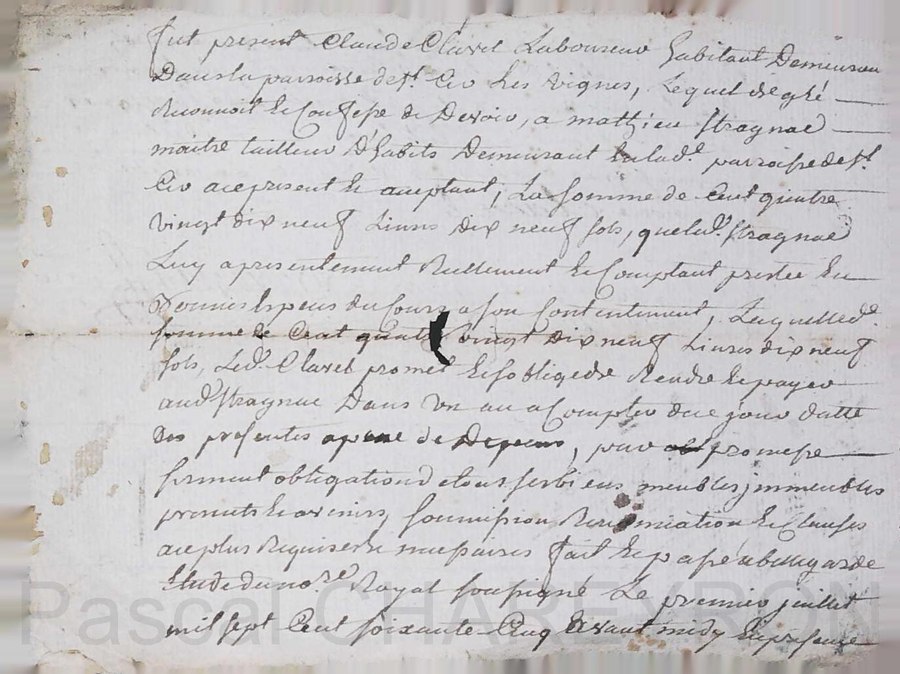 fut present Claude Claret Laboureur habitant Demeurant
Dans la paroisse de st. Cir les vignes, Lequel de gré
Reconnoit Et Confesse de Devoir, a mathieu stragnac
maitre tailleur D'habits Demeurant En lad.e parroisse de st.
Cir aupresent Et aceptant, La somme de Cent quatre
vingt dix neuf Livres dix neuf sols, que led. stragnac
Luy a presentement Reellement Et Comptant prestée En
Especes du Cours a son Contentement, Laquelle d.e
somme de Cent quatre vingt dix neuf Livres dix neuf
sols, Led. Claret promet Et soblige de Rendre Et payer
aud. stragnac Dans un an a Compter de ce jour datte
des presentes a peine de Depens, pour promesse
obligation de tous ses biens meubles, immeubles
presents Et avenirs, soumission Renonciation Et Clauses
au plus Requises Et necessaires fait Et passé a bellegarde
Etude du no.re Royal soussigné Le premier juillet
mil sept Cent soixante Cinq avant midy En presence
Pascal CHAREYRON